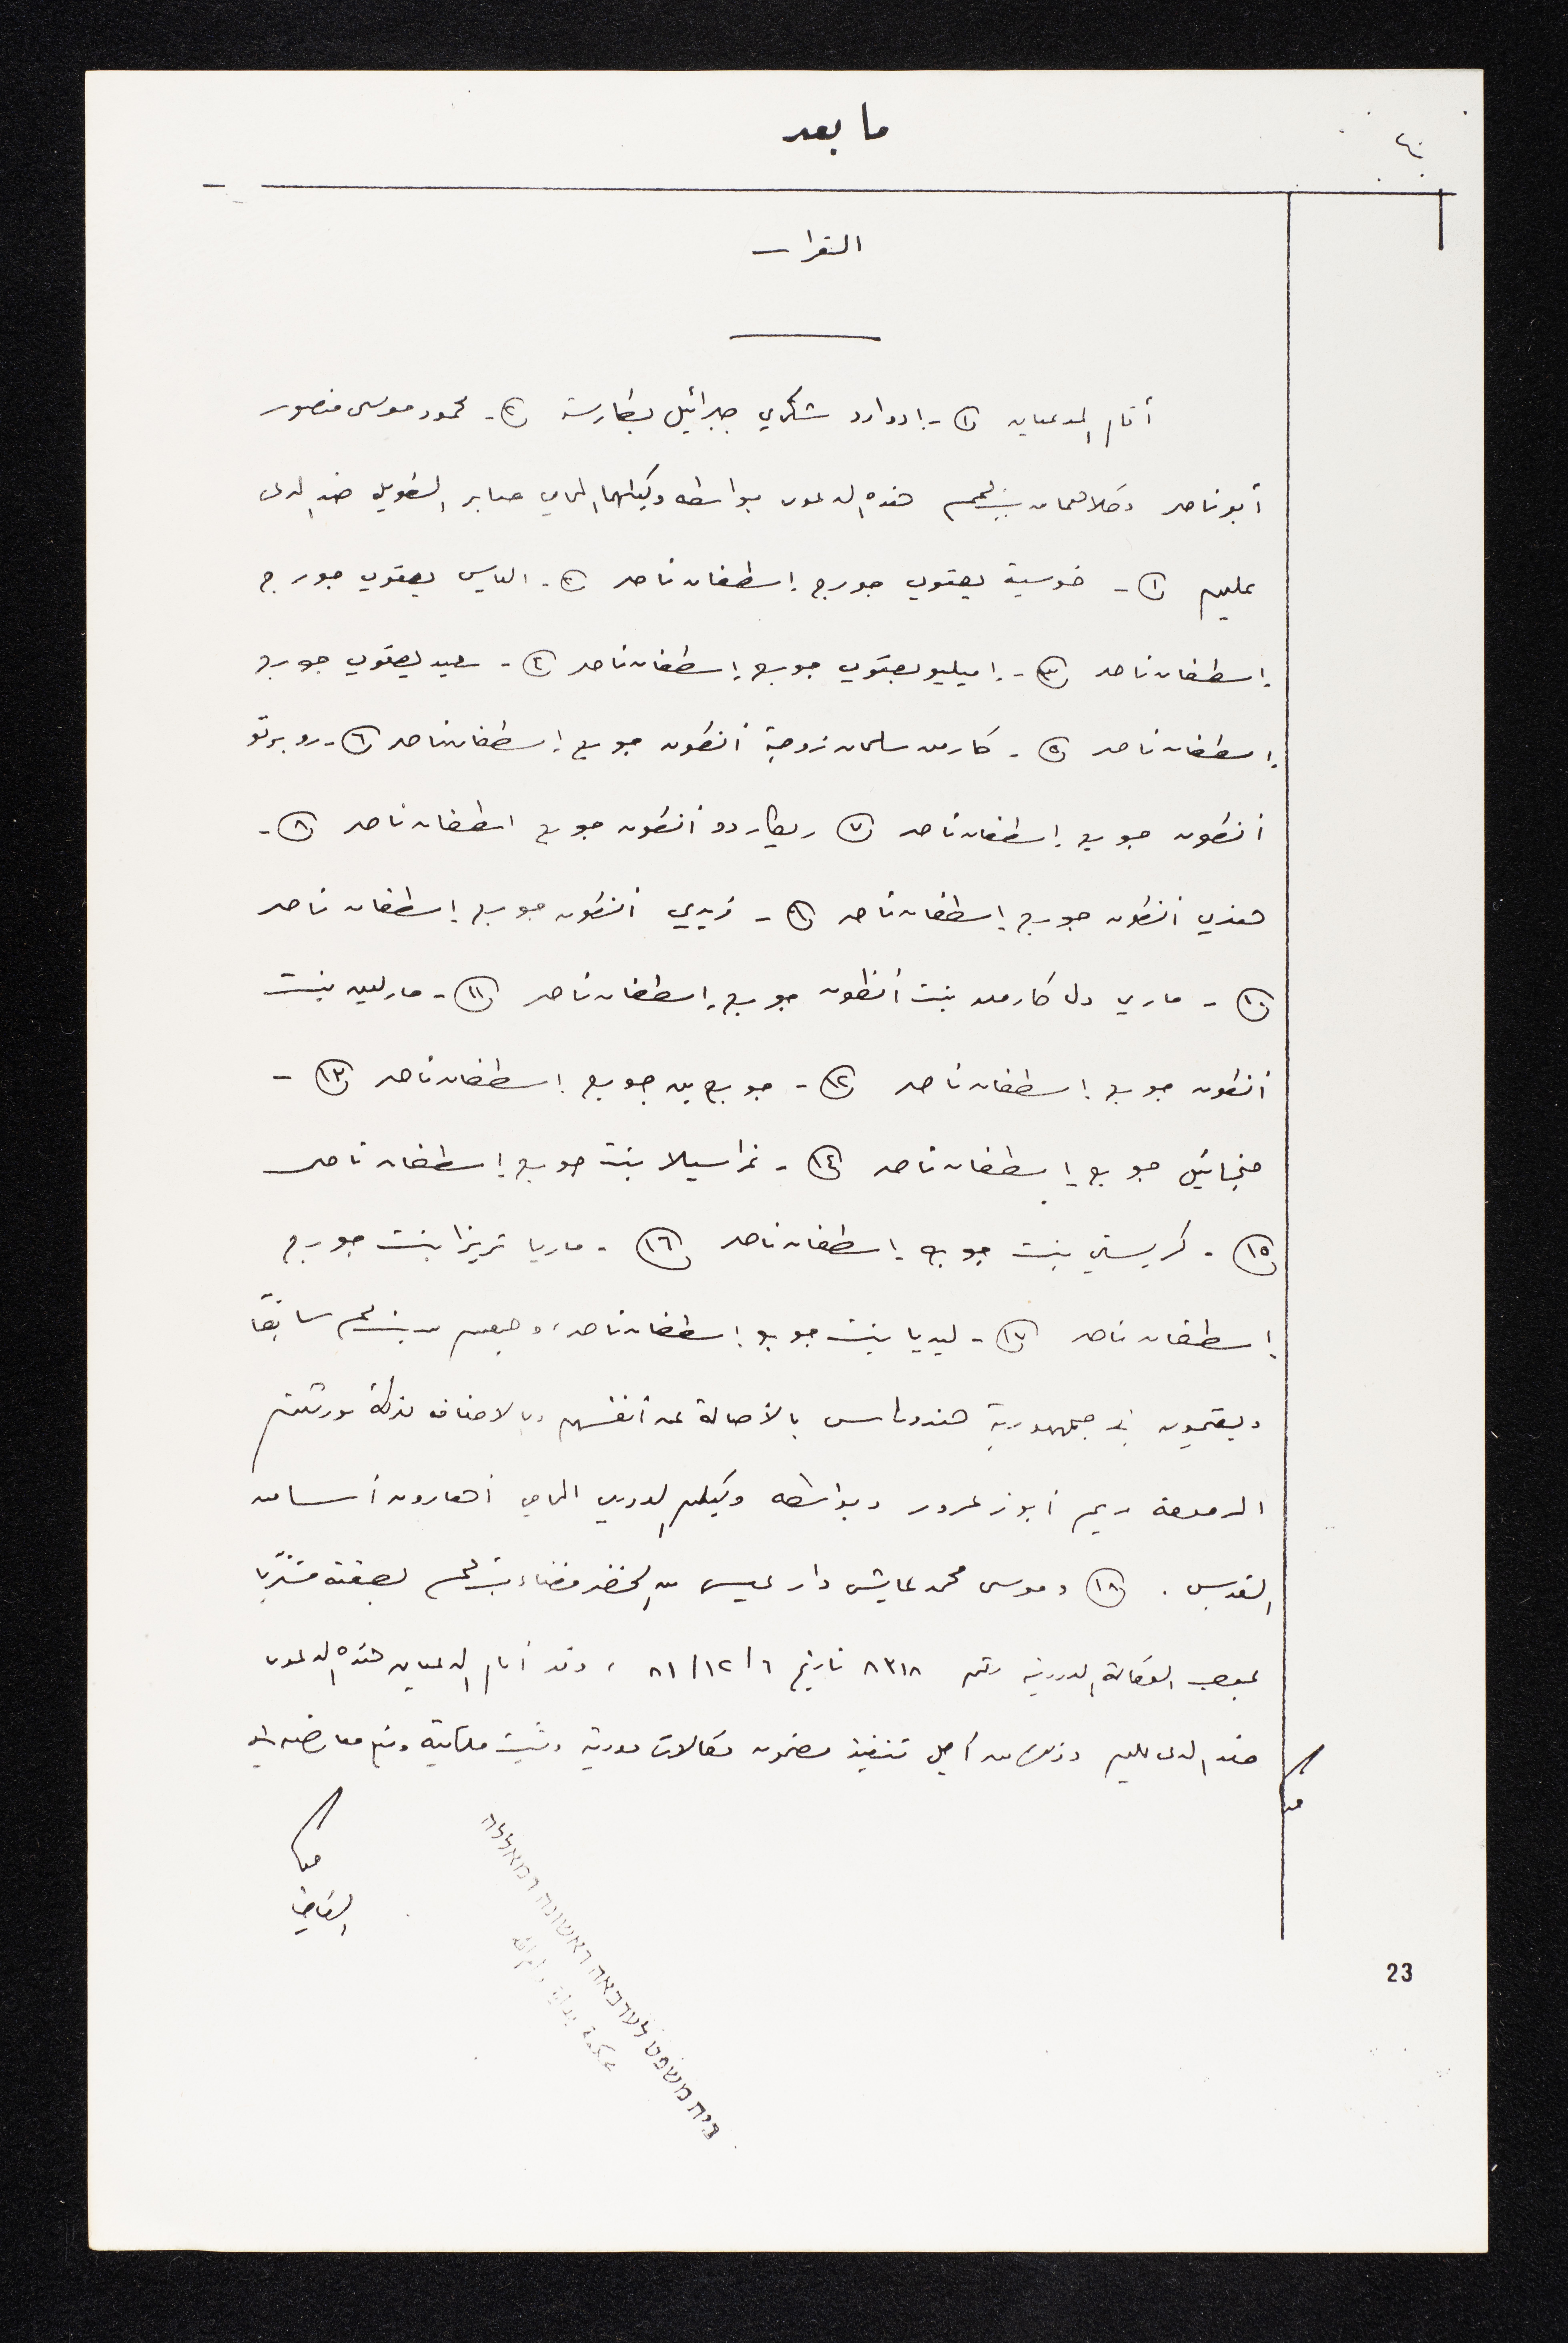 ما بعد
القرار
أقام المدعيان ١- إدوارد شكري جبرائيل بطارسة ٢- محمود موسى منصور
أبو ناصر وكلاهما من بيت لحم هذه الدعوى بواسطة وكيلهما المحامي صابر الطويل ضد المدعى
عليهم ١- خوسية يعقوب جورج إسطفان ناصر ٢- الياس يعقوب جورج
إسطفان ناصر ٣- إميليو يعقوب جورج إسطفان ناصر ٤- سعيد يعقوب جورج
إسطفان ناصر ٥- كارمن سلمان زوجة أنطون جورج إسطفان ناصر ٦- روبرتو
أنطون جورج إسطفان ناصر ٧ ريكاردو أنطون جورج اسطفان ناصر ٨-
هنري أنطون جورج إسطفان ناصر ٩- فريدي أنطون جورج إسطفان ناصر
١٠- ماري دل كارمن بنت أنطون جورج إسطفان ناصر ١١- مارلين بنت
أنطون جورج إسطفان ناصر ١٢- جورج بن جورج إسطفان ناصر ١٣-
ميخائيل جورج إسطفان ناصر ١٤- غراسيلا بنت جورج إسطفان ناصر
١٥- كريستي بنت جورج إسطفان ناصر ١٦- ماريا تريزا بنت جورج
إسطفان ناصر ١٧- ليديا بنت جورج إسطفان ناصر، وجميعهم من بيت لحم سابقاً
ويقيمون في جمهورية هندوراس بالأصالة عن أنفسهم وبالاضافة لتركة مورثتهم
المرحومة ريم أبو زعرور وبواسطة وكيلهم الدوري المحامي أهارون أ من
القدس. ١٨ وموسى محمد عايش دار عيسى من الخضر قضاء بيت لحم بصفته مشترياً
بموجب الوكالة الدورية رقم ٨٣١٨ تاريخ ٦/١٢/٨١، وقد أقام المدعيان هذه الدعوى
ضد المدعى عليهم وذلك من أجل تنفيذ مضمون وكالات دورية وتثبيت ملكية ومنع معارضة في
القاضي
בית משפט לערכאה ראשונה רמאללה
23